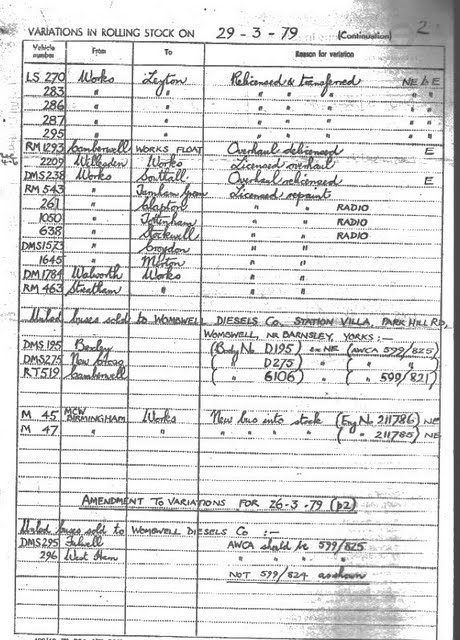 2
VARIATIONS IN ROLLING STOCK ON 29 - 3 - 79 (Continuation)
Vehicle number From To Reason for variation
LS 270 Works Leyton Relicensed & transferred NE to E
283 " " " " " "
286 " " " " " "
287 " " " " " "
295 " " " " " "
RM 1293 Camberwell WORKS FLOAT Overhaul delicensed E
2209 Willesden Works Licensed overhaul
DMS 238 Works Southall Overhaul relicensed E
RM 543 " Turnham Green Licensed repaint
261 " Clapton " " RADIO
1050 " Tottenham " " RADIO
638 " Stockwell " " RADIO
DMS 1573 " Croydon " "
1645 " Merton " "
DM 1784 Walworth Works " "
RM 463 Streatham " " "
Unlad buses sold to WOMBWELL DIESELS Co. STATION VILLA, PARK HILL RD,
WOMBWELL, NR BARNSLEY, YORKS :-
DMS 195 Bexley (Body No D195) ex NE (AWCA 599/825)
DMS 275 New Cross ( " D275) " ( " " )
RT 519 Camberwell ( " 6106) " ( " 599/821)
M 45 MCW BIRMINGHAM Works New bus into stock (Eng No 211786) NE
M 47 " " " " " " ( " 211785) NE
AMENDMENT TO VARIATIONS FOR 26-3-79 (p2)
Unlad buses sold to WOMBWELL DIESELS Co :-
DMS 295 Fulwell AWCA should be 599/825
296 West Ham " " " "
NOT 599/824 as shown